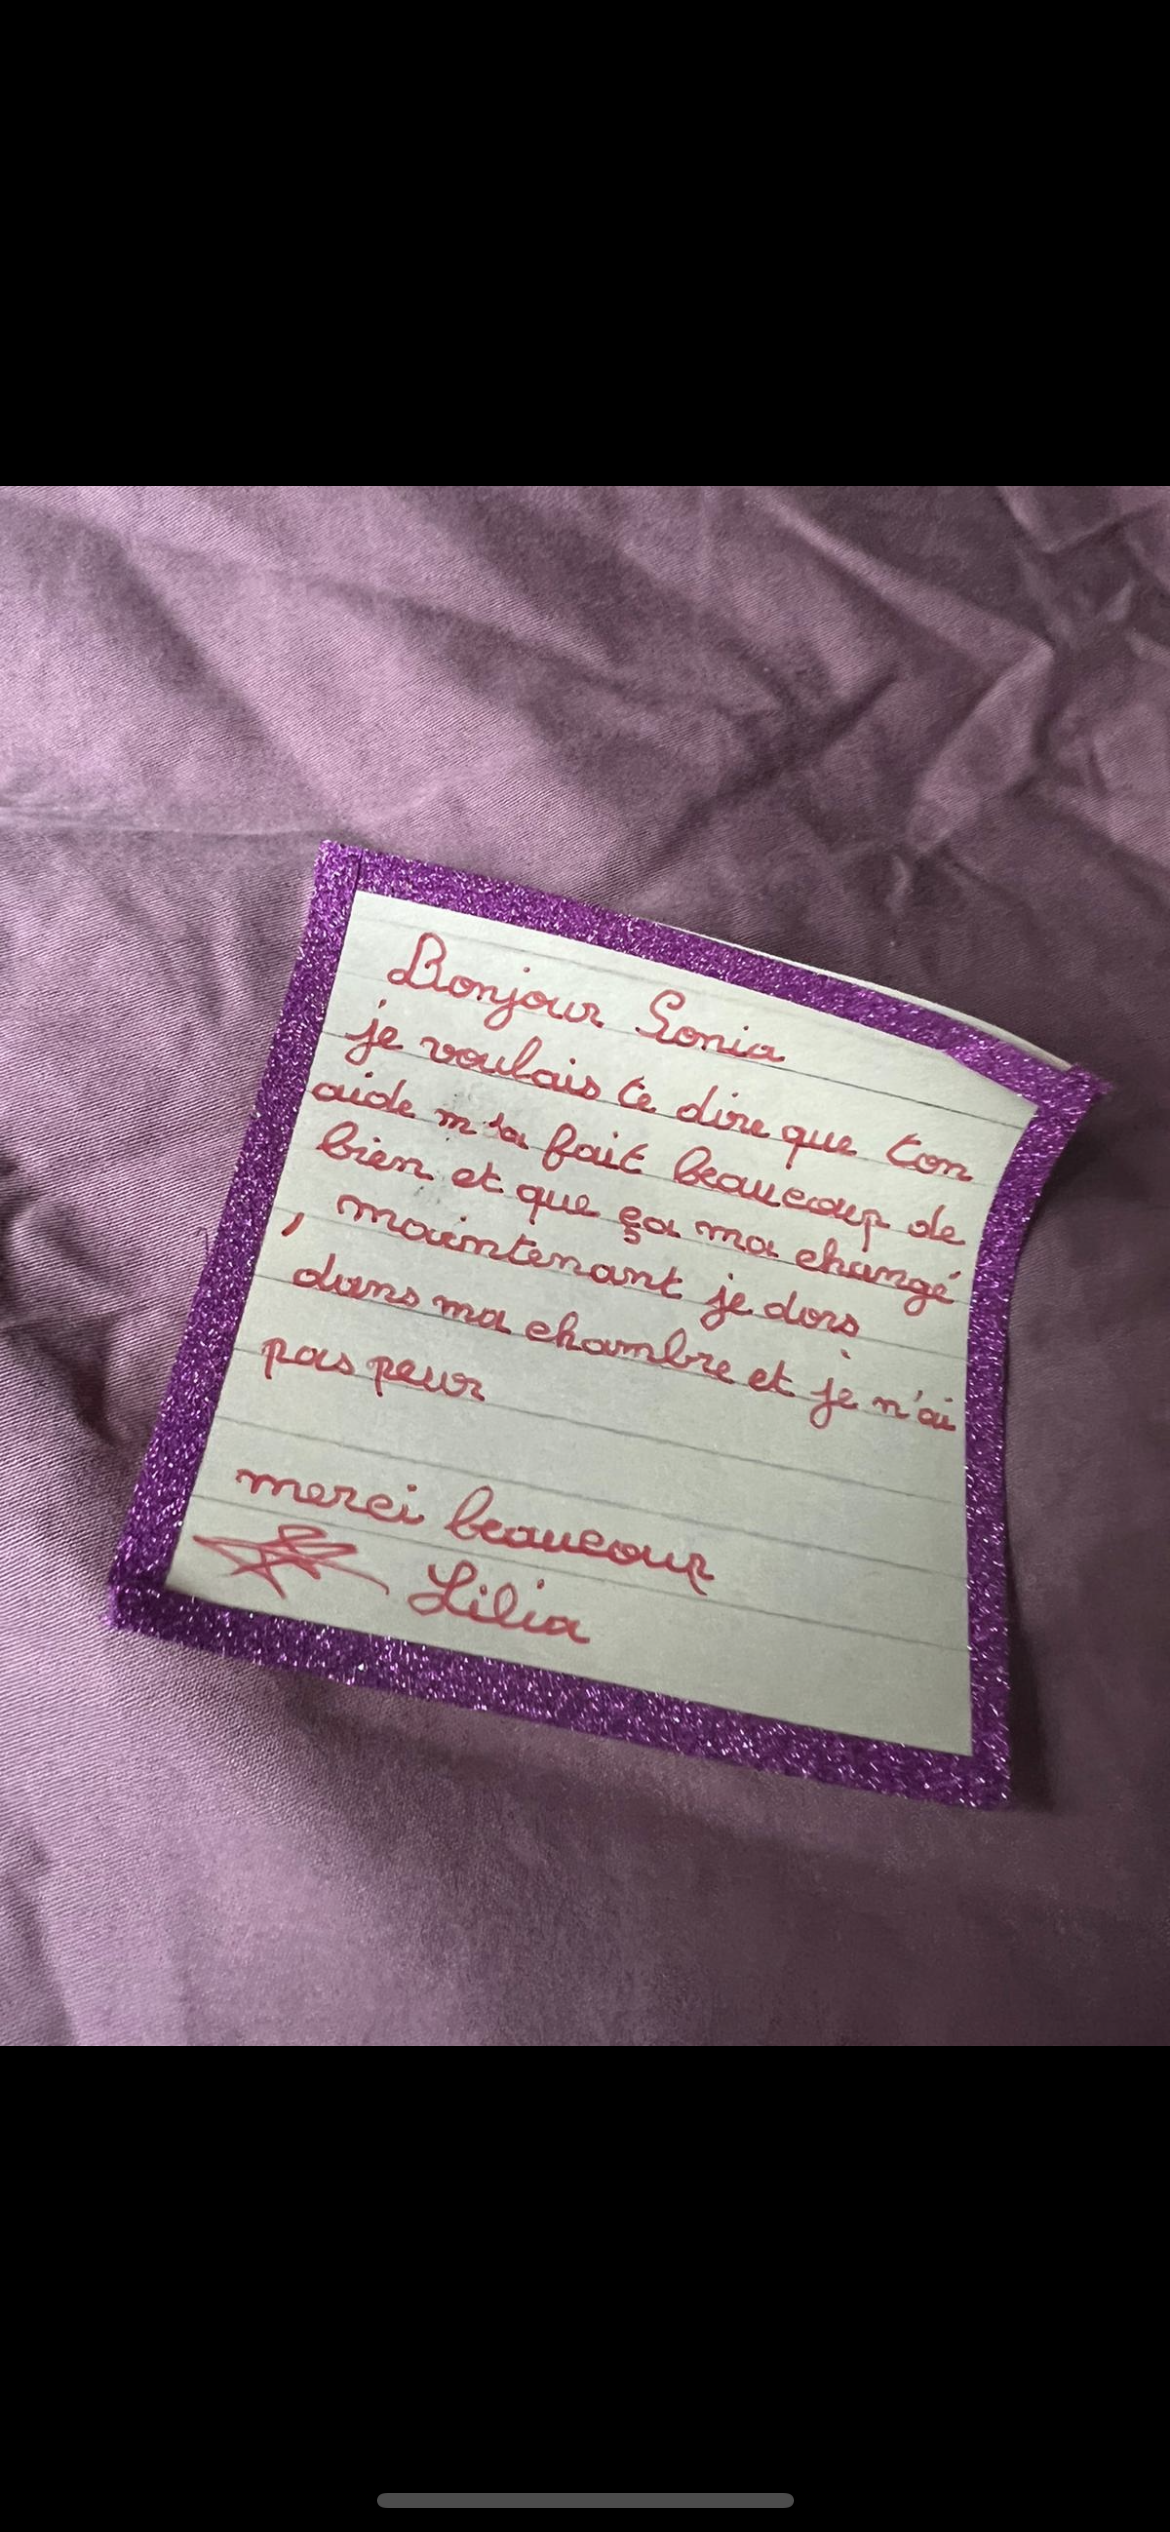 Bonjour Sonia
je voulais te dire que ton
aide m'a fait beaucoup de
bien et que ça ma changé
, maintenant je dors
dans ma chambre et je n'ai
pas peur
merci beaucoup
Lilia